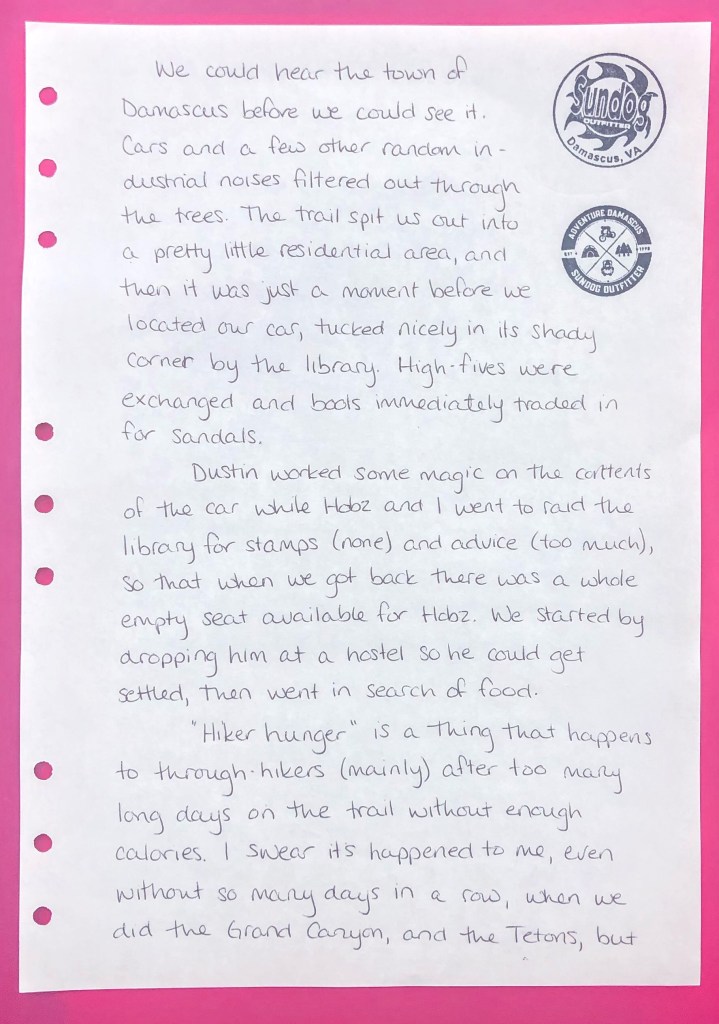 We could hear the town of
Damascus before we could see it.
Cars and a few other random in-
dustrial noises filtered out through
the trees. The trail spit us out into
a pretty little residential area, and
then it was just a moment before we
located our car, tucked nicely in its shady
corner by the library. High-fives were
exchanged and boots immediately traded in
for sandals.
Dustin worked some magic on the contents
of the car while Hobz and I went to raid the
library for stamps (none) and advice (too much),
so that when we got back there was a whole
empty seat available for Hobz. We started by
dropping him at a hostel so he could get
settled, then went in search of food.
"Hiker hunger" is a thing that happens
to through-hikers (mainly) after too many
long days on the trail without enough
calories. I swear it's happened to me, even
without so many days in a row, when we
did the Grand Canyon, and the Tetons, but
Sundog
OUTFITTER
Damascus, VA
ADVENTURE DAMASCUS
EST
SUNDOG OUTFITTER